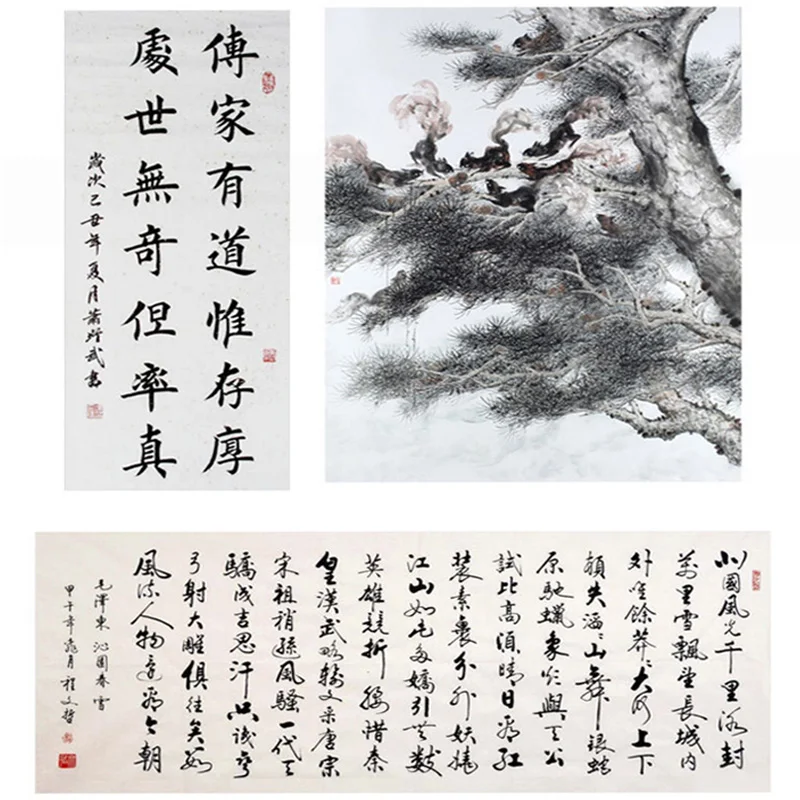 傳家有道惟存厚
處世無奇但率真
歲次己丑年夏月蕭武書
北國風光千里冰封
萬里雪飄望長城內
外唯餘莽々大河上下
頓失滔々山舞銀蛇
原馳蠟象欲與天公
試比高須晴日看紅
裝素裹分外妖嬈
江山如此多嬌引無數
英雄競折腰惜秦
皇漢武略輸文采唐宗
宋祖稍遜風騷一代天
驕成吉思汗只識彎
弓射大雕俱往矣數
風流人物還看今朝
毛澤東 沁園春雪
甲午年月程文哲書